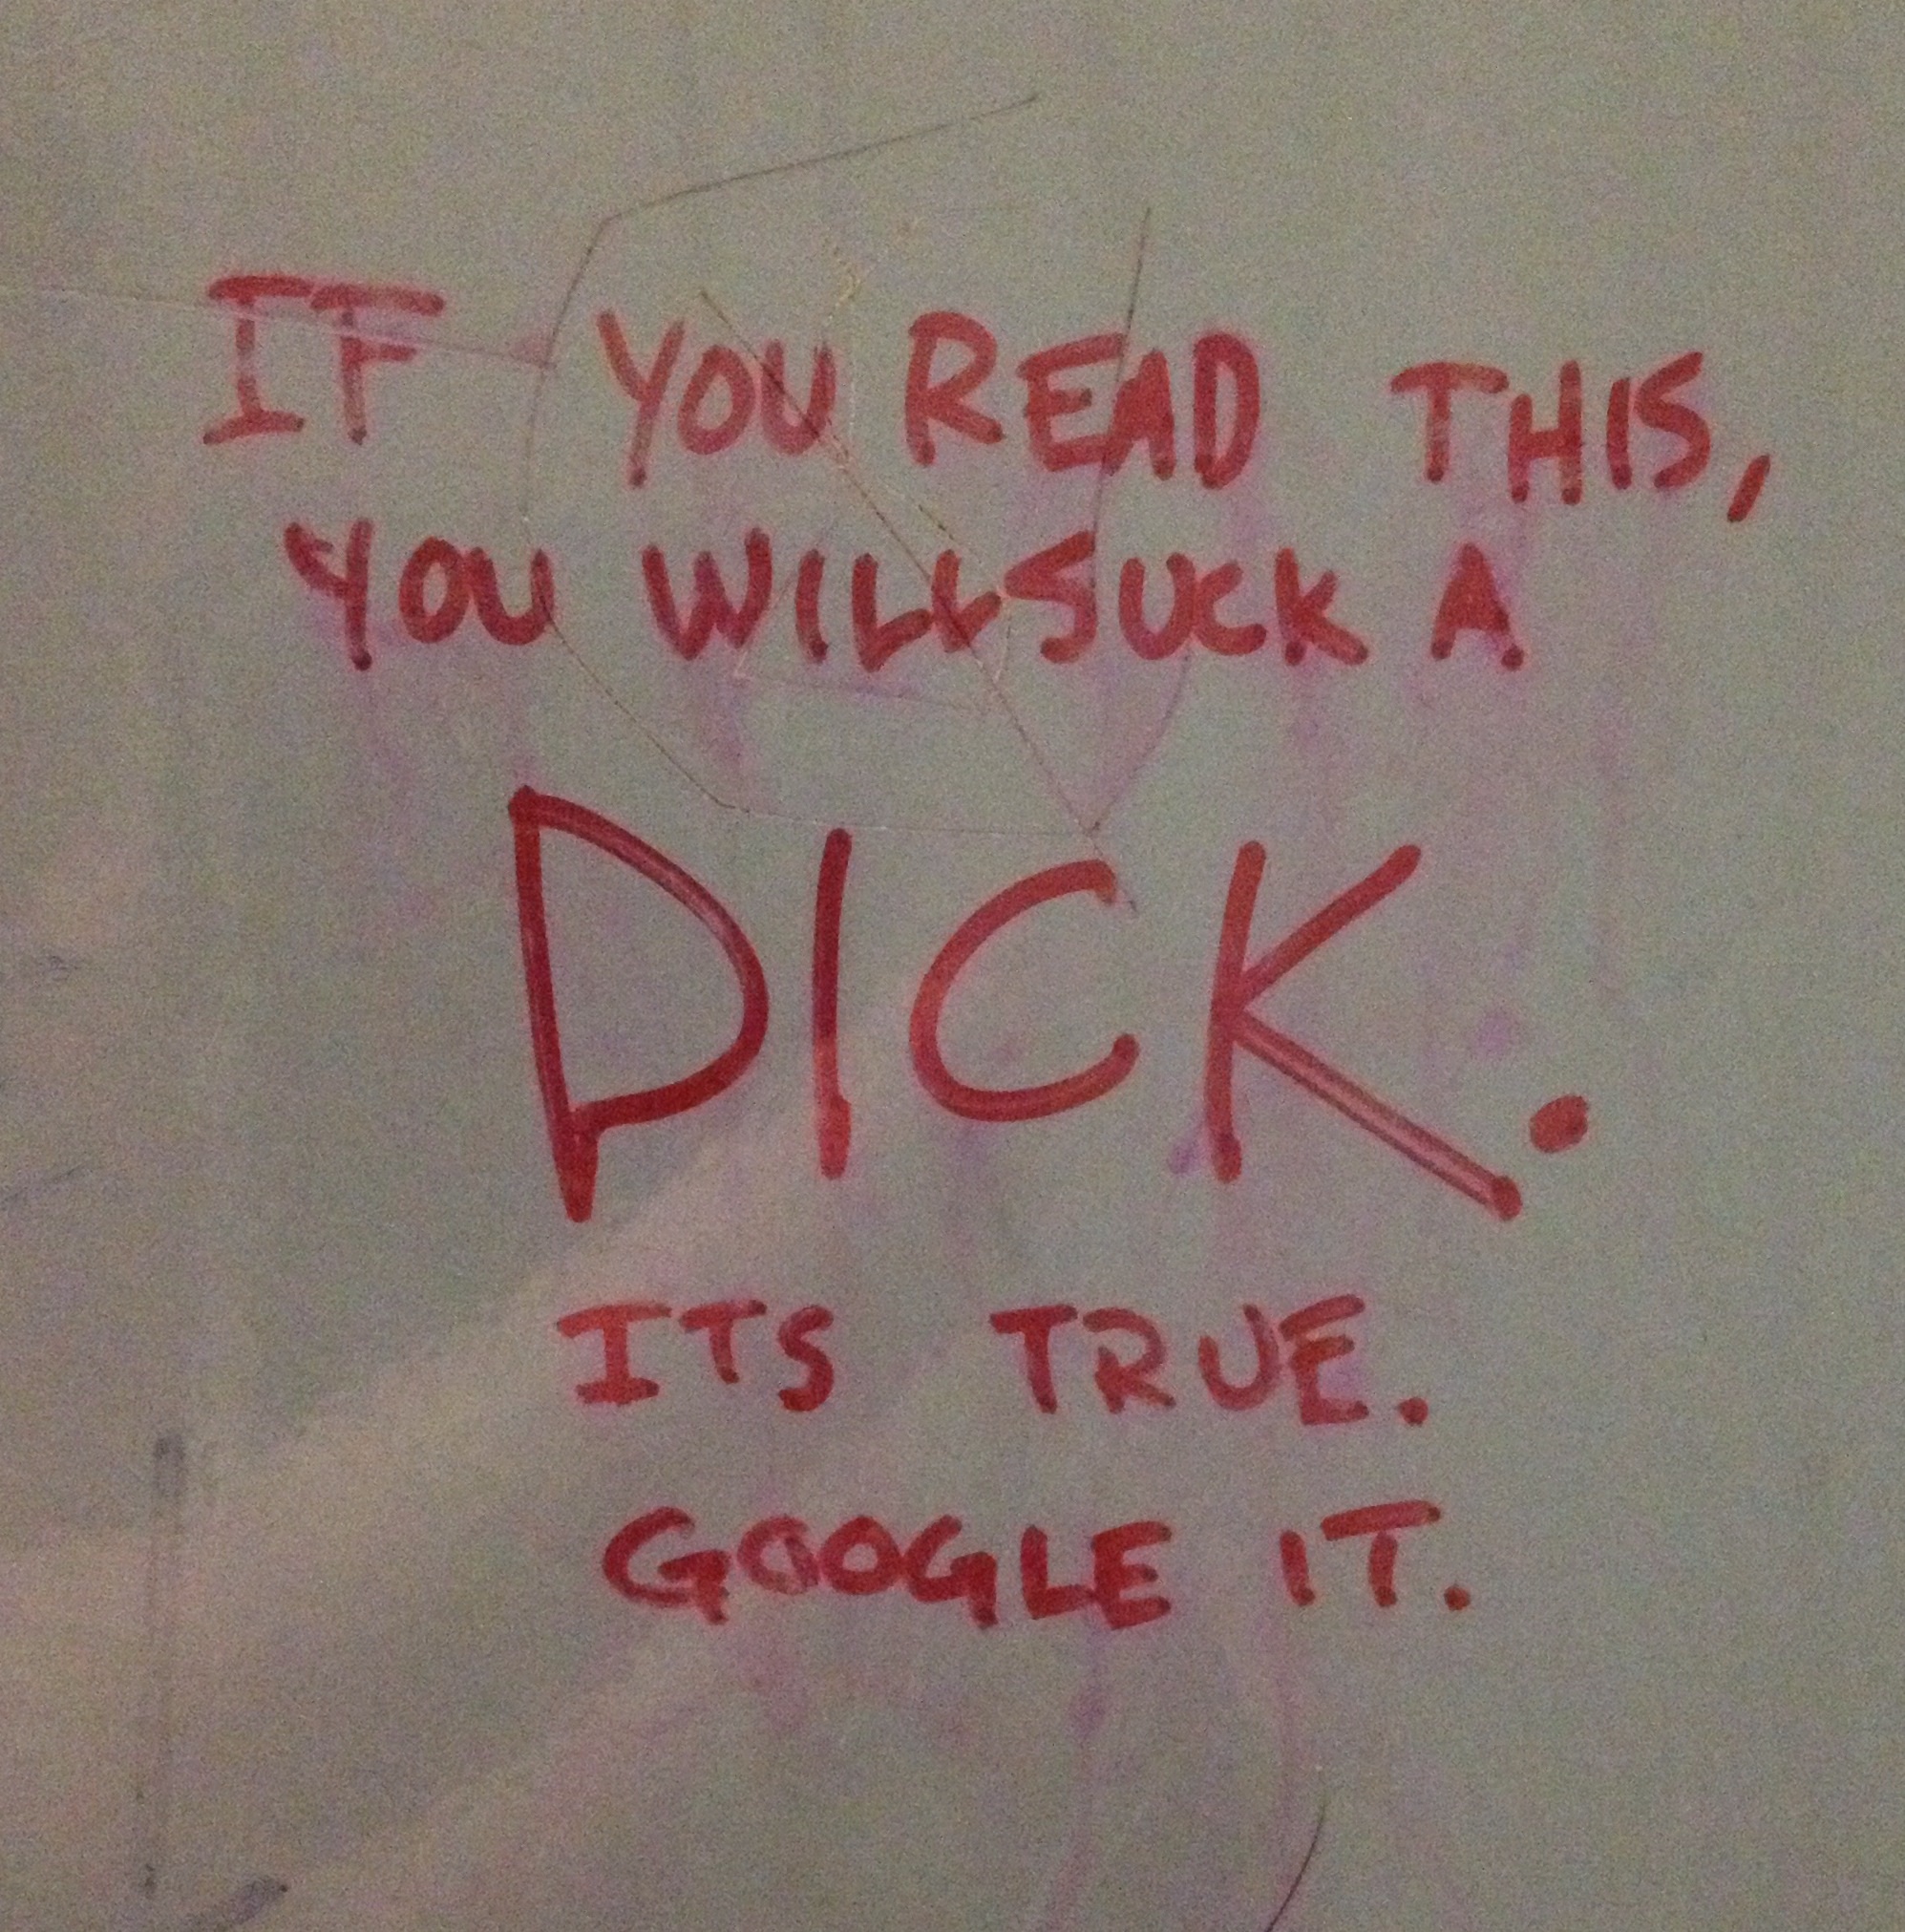 IF YOU READ THIS,
YOU WILL SUCK A
DICK.
ITS TRUE.
GOOGLE IT.